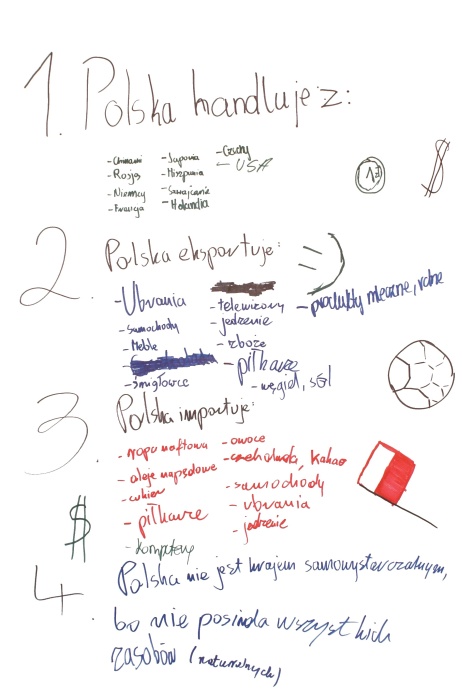 1. Polska handluje z:
- Chinami
- Rosja
- Niemcy
- Francja
- Japonia
- Hiszpania
- Szwajcaria
- Holandia
- Czechy
- USA
1 zł
$
2. Polska eksportuje:
- Ubrania
- samochody
- Meble
- śmigłowce
- telewizory
- jedzenie
- zboże
- piłkarze
- węgiel, sól
- produkty mleczne, rolne
3. Polska importuje:
- ropa naftowa
- oleje napędowe
- cukier
- piłkarze
- komputery
- owoce
- czekolada, kakao
- samochody
- ubrania
- jedzenie
$
4. Polska nie jest krajem samowystarczalnym,
bo nie posiada wszystkich
zasobów (naturalnych)